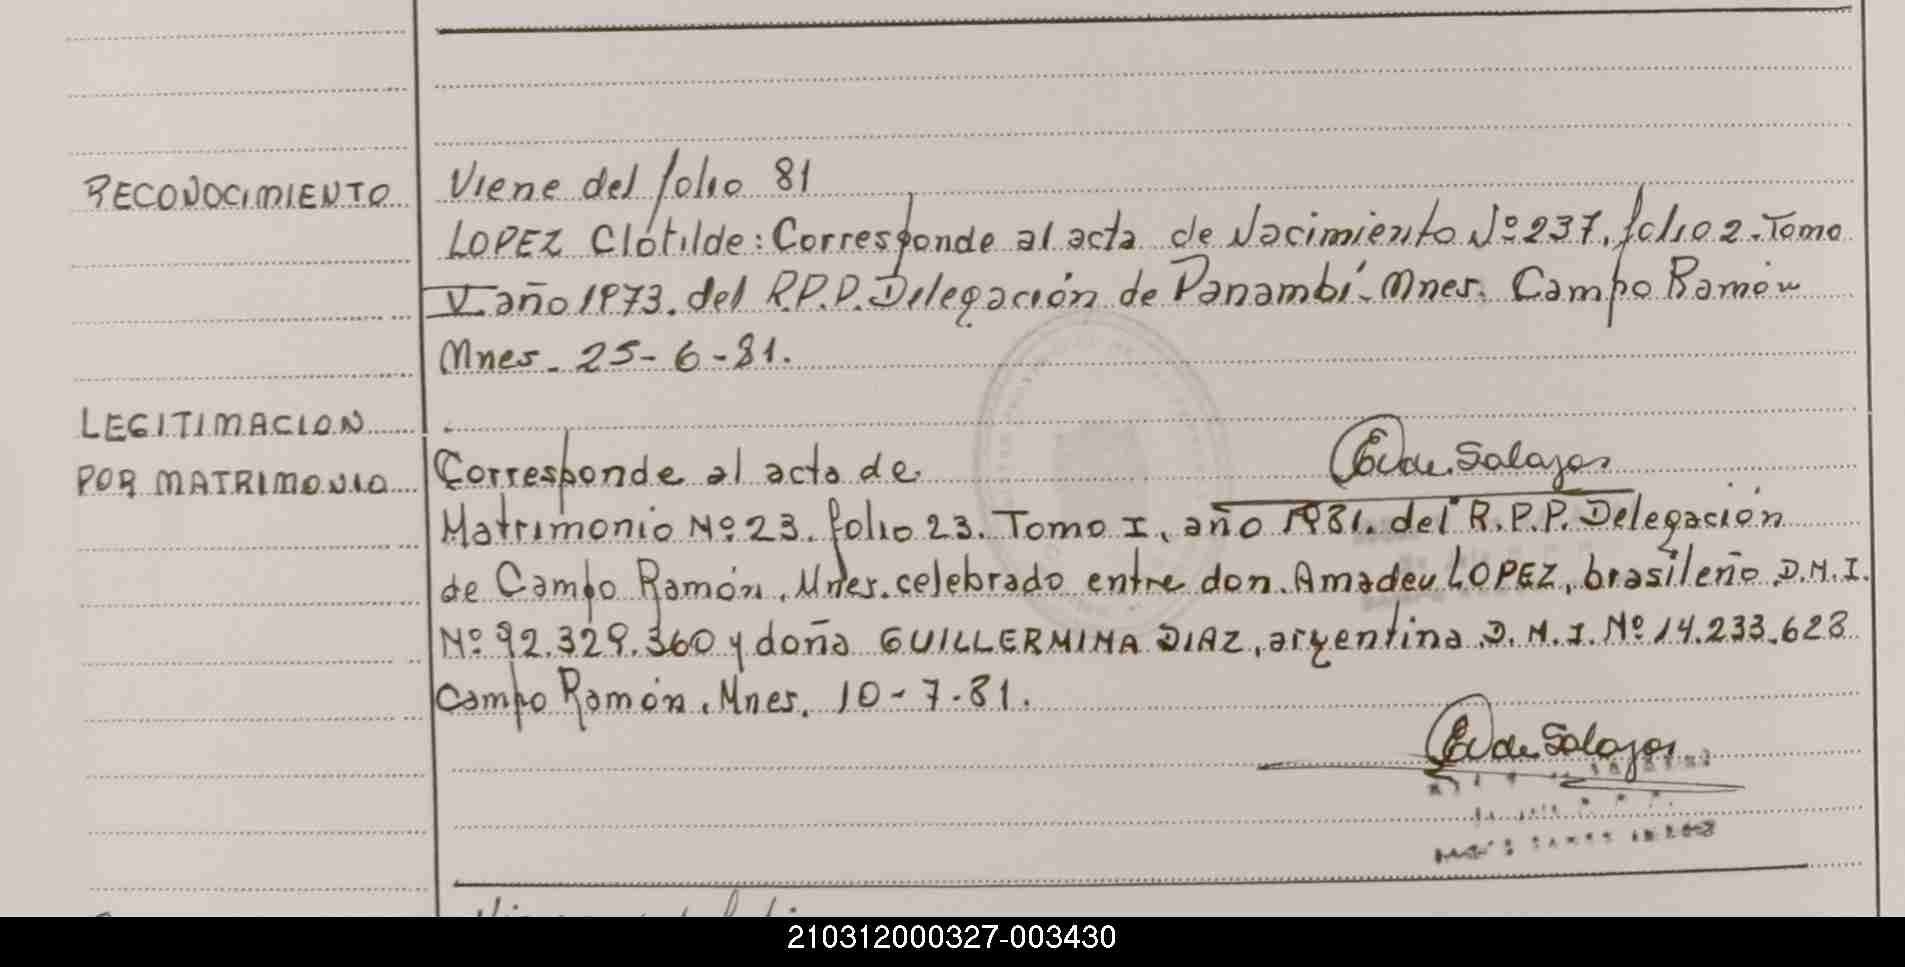 RECONOCIMIENTO Viene del folio 81
LOPEZ Clotilde: Corresponde al acta de Nacimiento Nº 237. folio 2. Tomo
V. año 1973. del R.P.P. Delegación de Panambí. Mnes. Campo Ramón
Mnes. 25-6-81.
LEGITIMACION
POR MATRIMONIO Corresponde al acta de
Matrimonio Nº 23. folio 23. Tomo I, año 1981. del R.P.P. Delegación
de Campo Ramón. Mnes. celebrado entre don. Amadeu LOPEZ, brasileño D.N.I.
Nº 92.329.360 y doña GUILLERMINA DIAZ, argentina D.N.I. Nº 14.233.628
Campo Ramón. Mnes. 10-7-81.
210312000327-003430